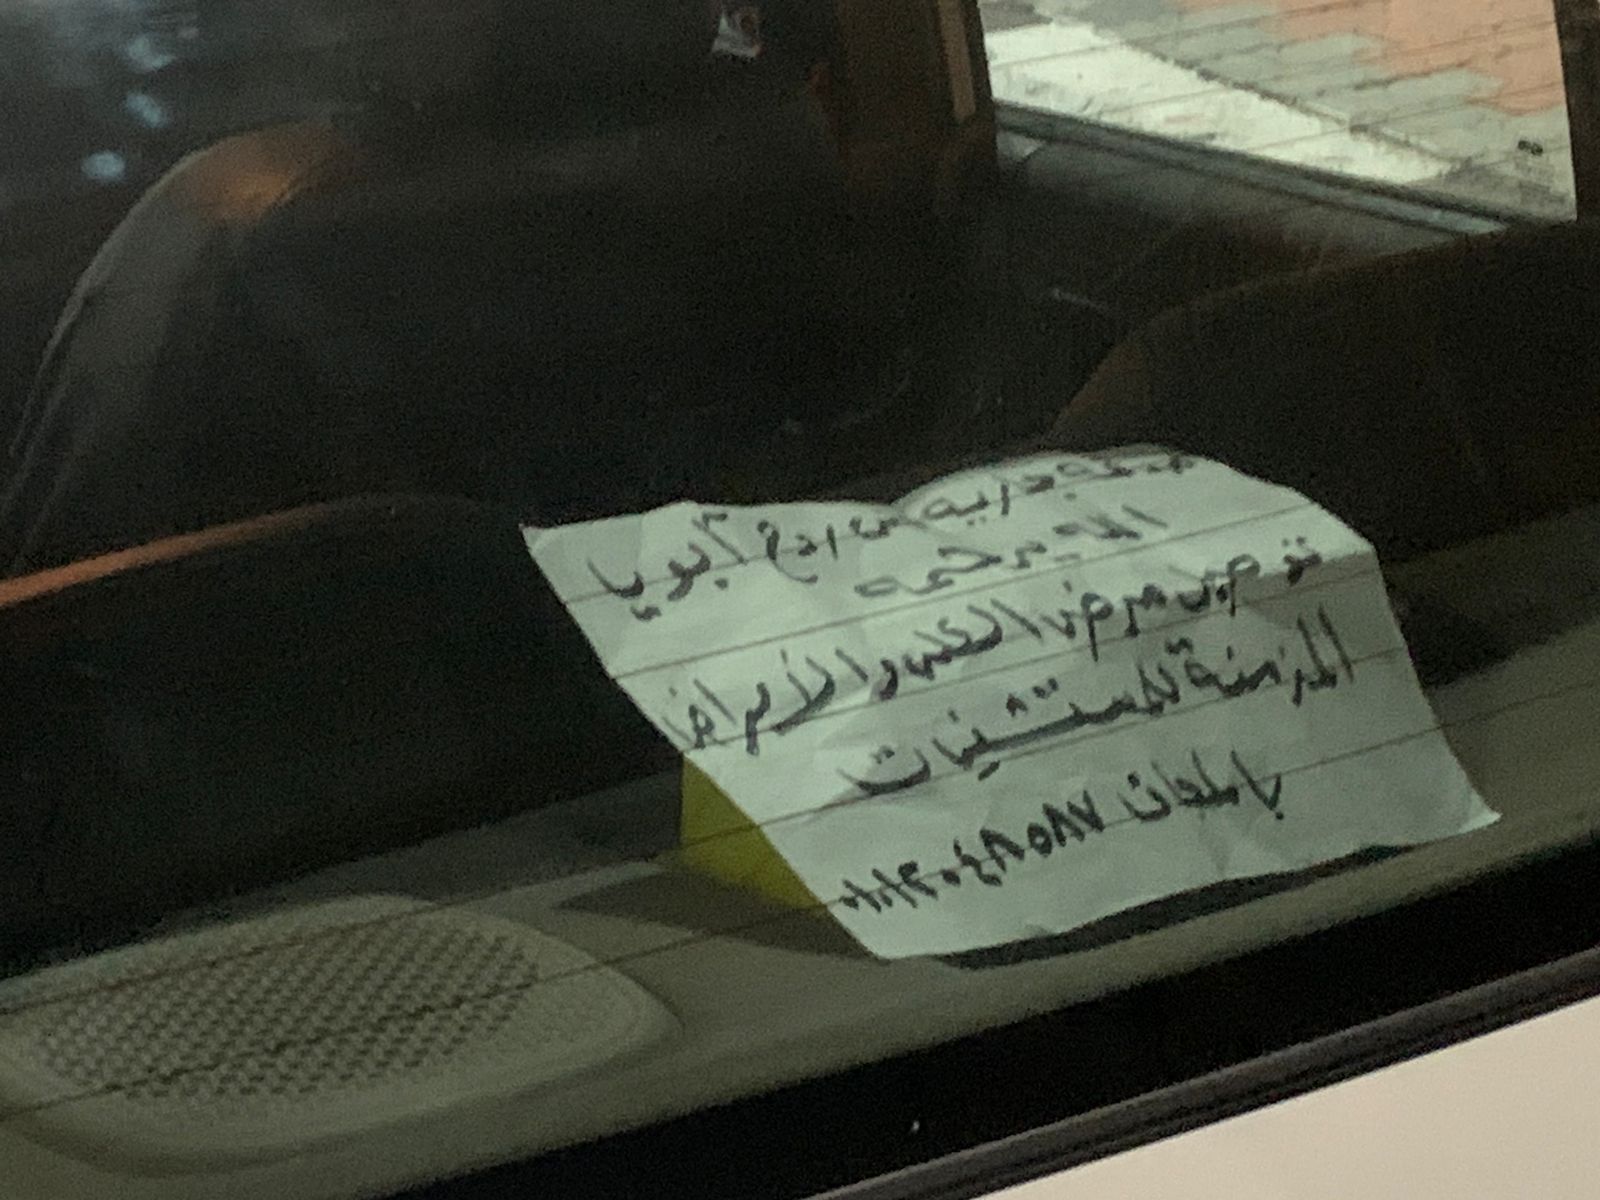 صدقه جاريه على روح أبويا
الله يرحمه
توصيل مرضى الكلى والأمراض
المزمنة للمستشفيات
بالمجان ٠١١٢٠٤٨٥٨٧